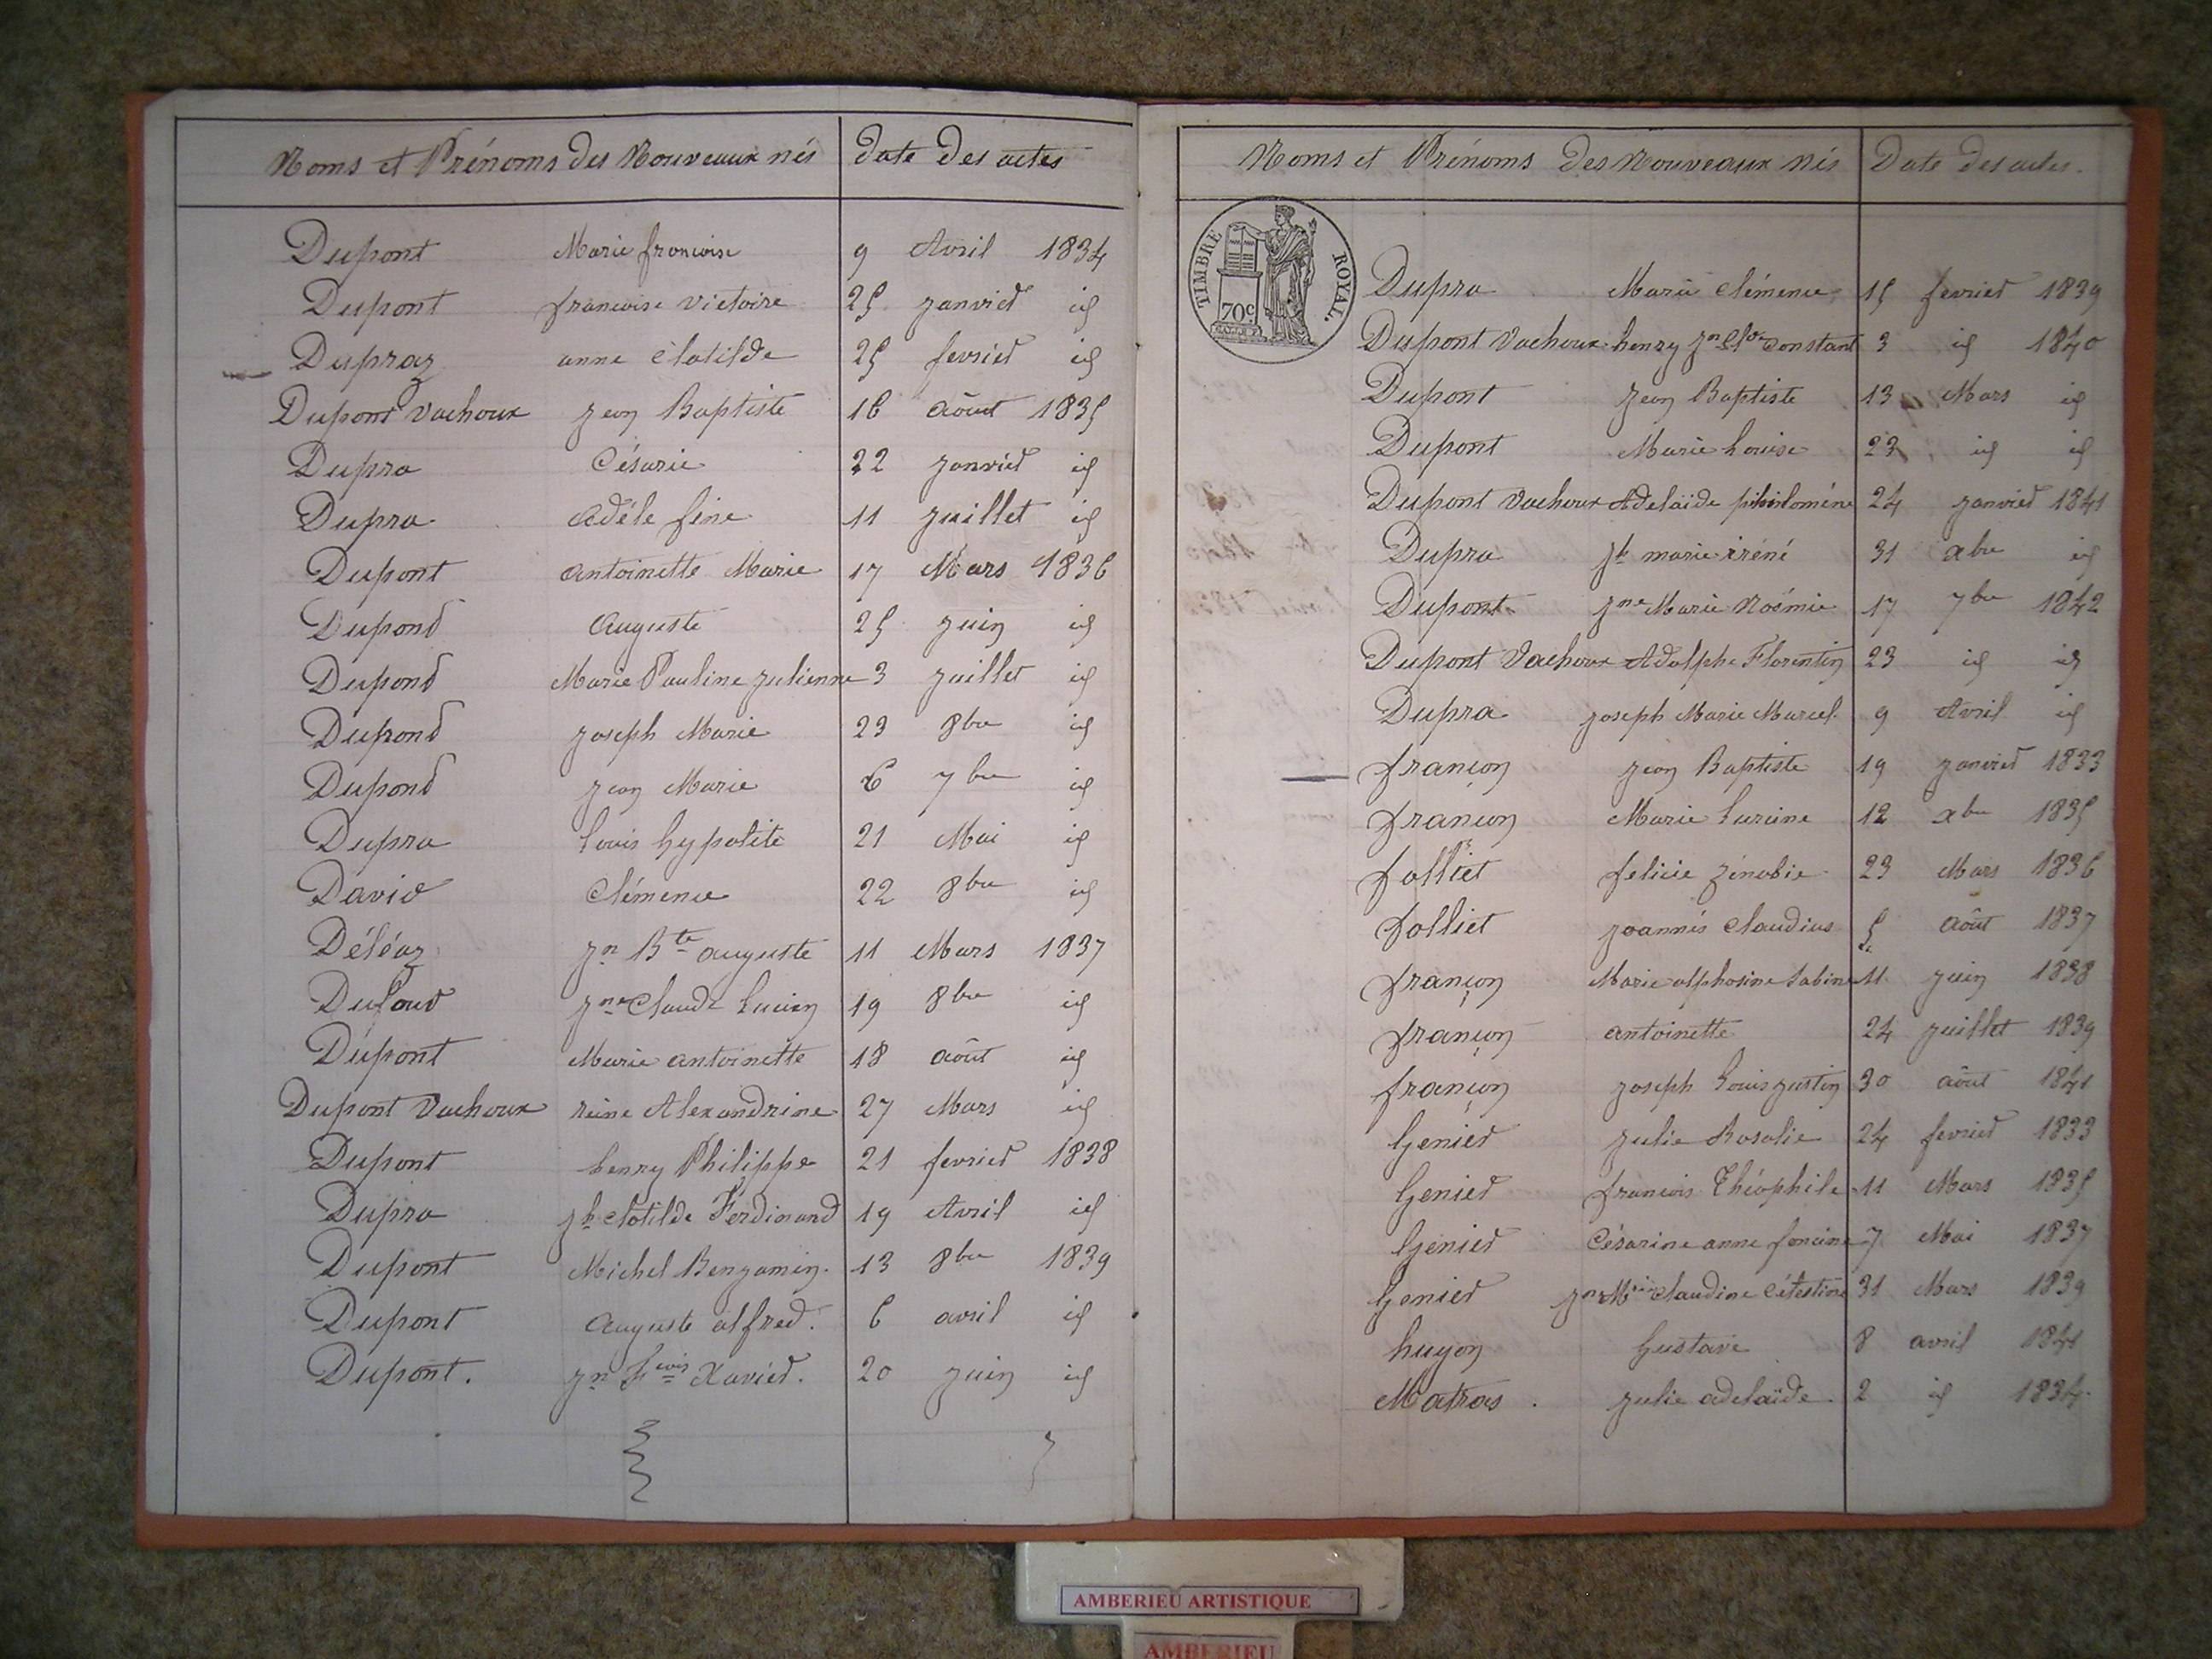 Noms et Prénoms des Nouveaux nés date des actes
Dupont Marie francoise 9 Avril 1834
Dupont francoise victoire 25 janvier id
Dupraz anne Clotilde 25 fevrier id
Dupont Vachoux jean Baptiste 16 Août 1835
Dupra Césarie 22 janvier id
Dupra Adéle fine 11 juillet id
Dupont Antoinette Marie 17 Mars 1836
Dupond Auguste 25 juin id
Dupond Marie Pauline julienne 3 juillet id
Dupond joseph Marie 23 8bre id
Dupond jean Marie 6 7bre id
Dupra Louis hypolite 21 Mai id
David Clémence 22 8bre id
Déléaz jn Bte auguste 11 Mars 1837
Dufour jne Claude Lucien 19 8bre id
Dupont Marie antoinette 18 août id
Dupont Vachoux reine Alexandrine 27 Mars id
Dupont henry Philippe 21 fevrier 1838
Dupra jh Clotilde Ferdinand 19 Avril id
Dupont Michel Benjamin 13 8bre 1839
Dupont Auguste alfred. 6 avril id
Dupont. jn fcois Xavier. 20 juin id
Noms et Prénoms des Nouveaux nés Date des actes.
TIMBRE ROYAL.
70c
Dupra Marie Clémence 15 fevrier 1839
Dupont Vachoux henry jn constant 3 id 1840
Dupont jean Baptiste 13 Mars id
Dupont Marie Louise 23 id id
Dupont Vachoux Adelaïde philoméne 24 janvier 1841
Dupra jh marie iréné 31 xbre id
Dupont jne Marie Noémie 17 7bre 1842
Dupont Vachoux Adolphe Florentin 23 id id
Dupra joseph Marie Marcel 9 Avril id
françon jean Baptiste 19 janvier 1833
françon Marie Lucine 12 xbre 1835
folliet felicie zénobie 23 Mars 1836
folliet joannés Claudius 5 Août 1837
françon Marie alphosine Sabine 11 juin 1838
françon antoinette 24 juillet 1839
françon joseph Louis justin 30 août 1841
Genier julie Rosalie 24 fevrier 1833
Genier francois Théophile 11 Mars 1835
Genier Césarine anne foncine 7 Mai 1837
Genier jne Mie Claudine Célestine 31 Mars 1839
hugon Gustave 8 avril 1841
Matras . julie adelaïde . 2 id 1834.
AMBERIEU ARTISTIQUE
AMBERIEU